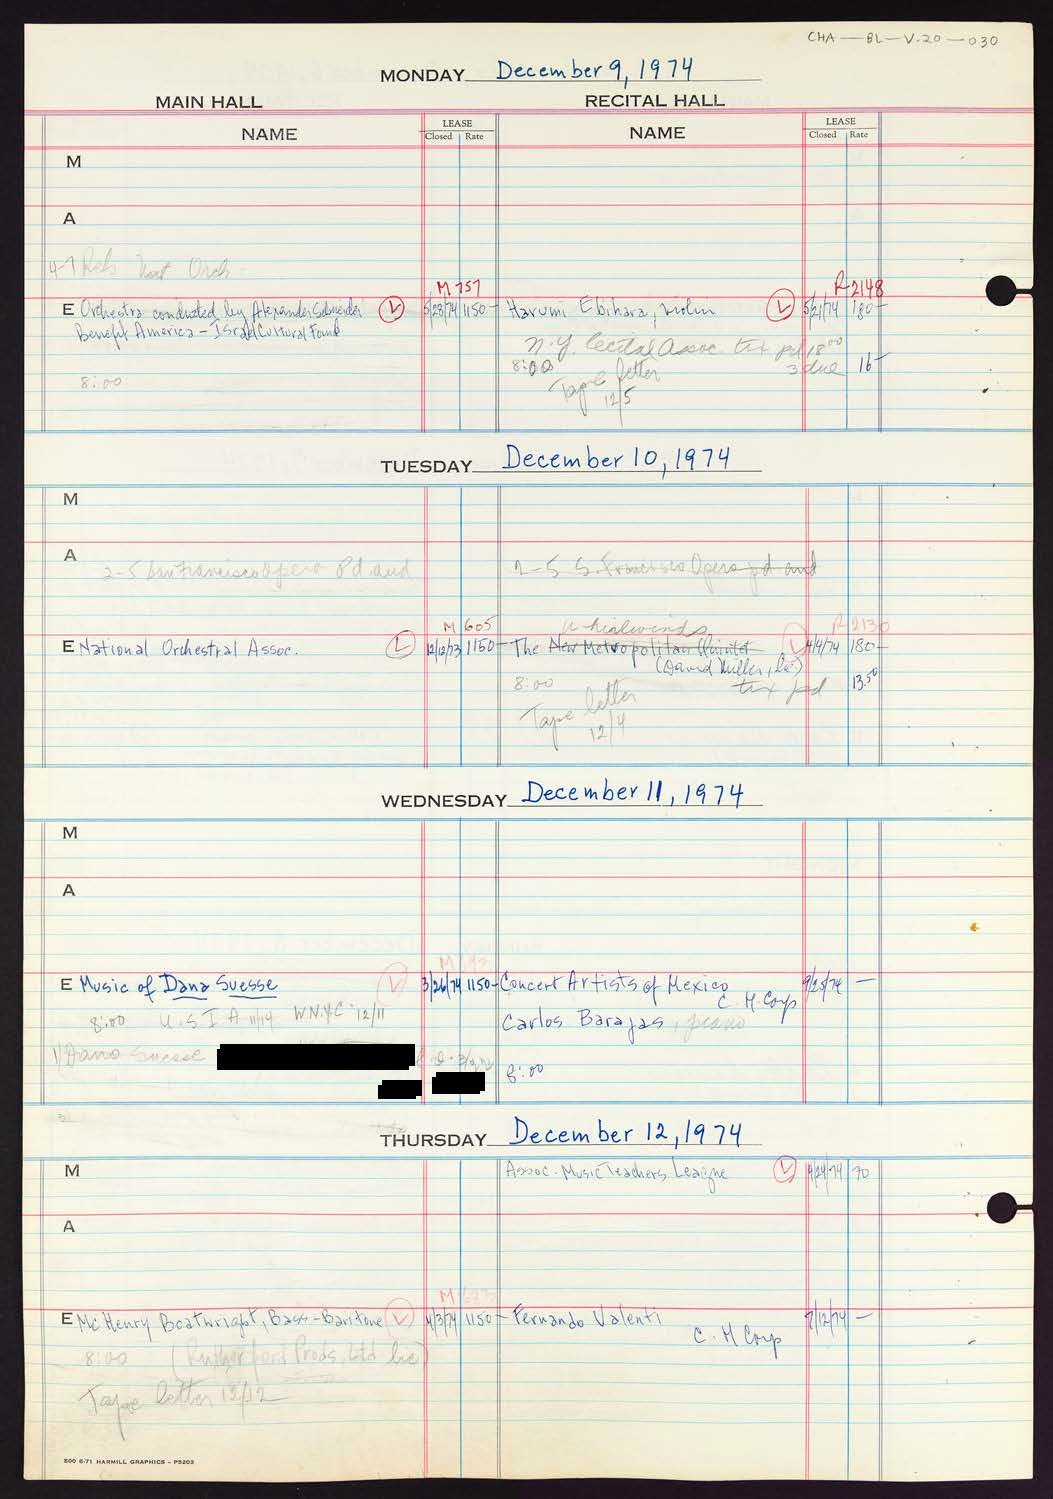 CHA — BL — V.20 — 030
MONDAY December 9, 1974
MAIN HALL RECITAL HALL
NAME LEASE Closed Rate NAME LEASE Closed Rate
M
A
4-7 Rehs Nat Orch.
M 757 R-2148
E Orchestra conducted by Alexander Schneider L 5/23/74 1150- Harumi Ebihara, violin L 5/21/74 180-
Benefit America - Israel Cultural Found
N.Y. Recital Assoc. tix pd 18 00
8:00 3 due 16-
8:00 Tape letter
12/5
TUESDAY December 10, 1974
M
A
2-5 San Francisco Opera Pd aud 2-5 S. Francisco Opera pd aud
M 605 Whirlwinds R-2130
E National Orchestral Assoc. L 12/12/73 1150- The New Metropolitan Quintet L 4/9/74 180-
(David Muller, lic.)
8:00 tix pd 13.50
Tape letter
12/4
WEDNESDAY December 11, 1974
M
A
M
E Music of Dana Suesse L 3/26/74 1150- Concert Artists of Mexico 9/25/74 —
C. H. Corp
8:00 U.S.I.A 11/19 WNYC 12/11
Carlos Barajas, piano
1) Dana Suesse
8:00
THURSDAY December 12, 1974
M Assoc. Music Teachers League L 9/24/74 70
A
M 623
E McHenry Boatwright, Bass-Baritone L 4/3/74 1150- Fernando Valenti 7/12/74 —
C. H Corp
8:00 (Rutherford Prods, Ltd lic)
Tape letter 12/12
500 6-71 HARMILL GRAPHICS - P5203